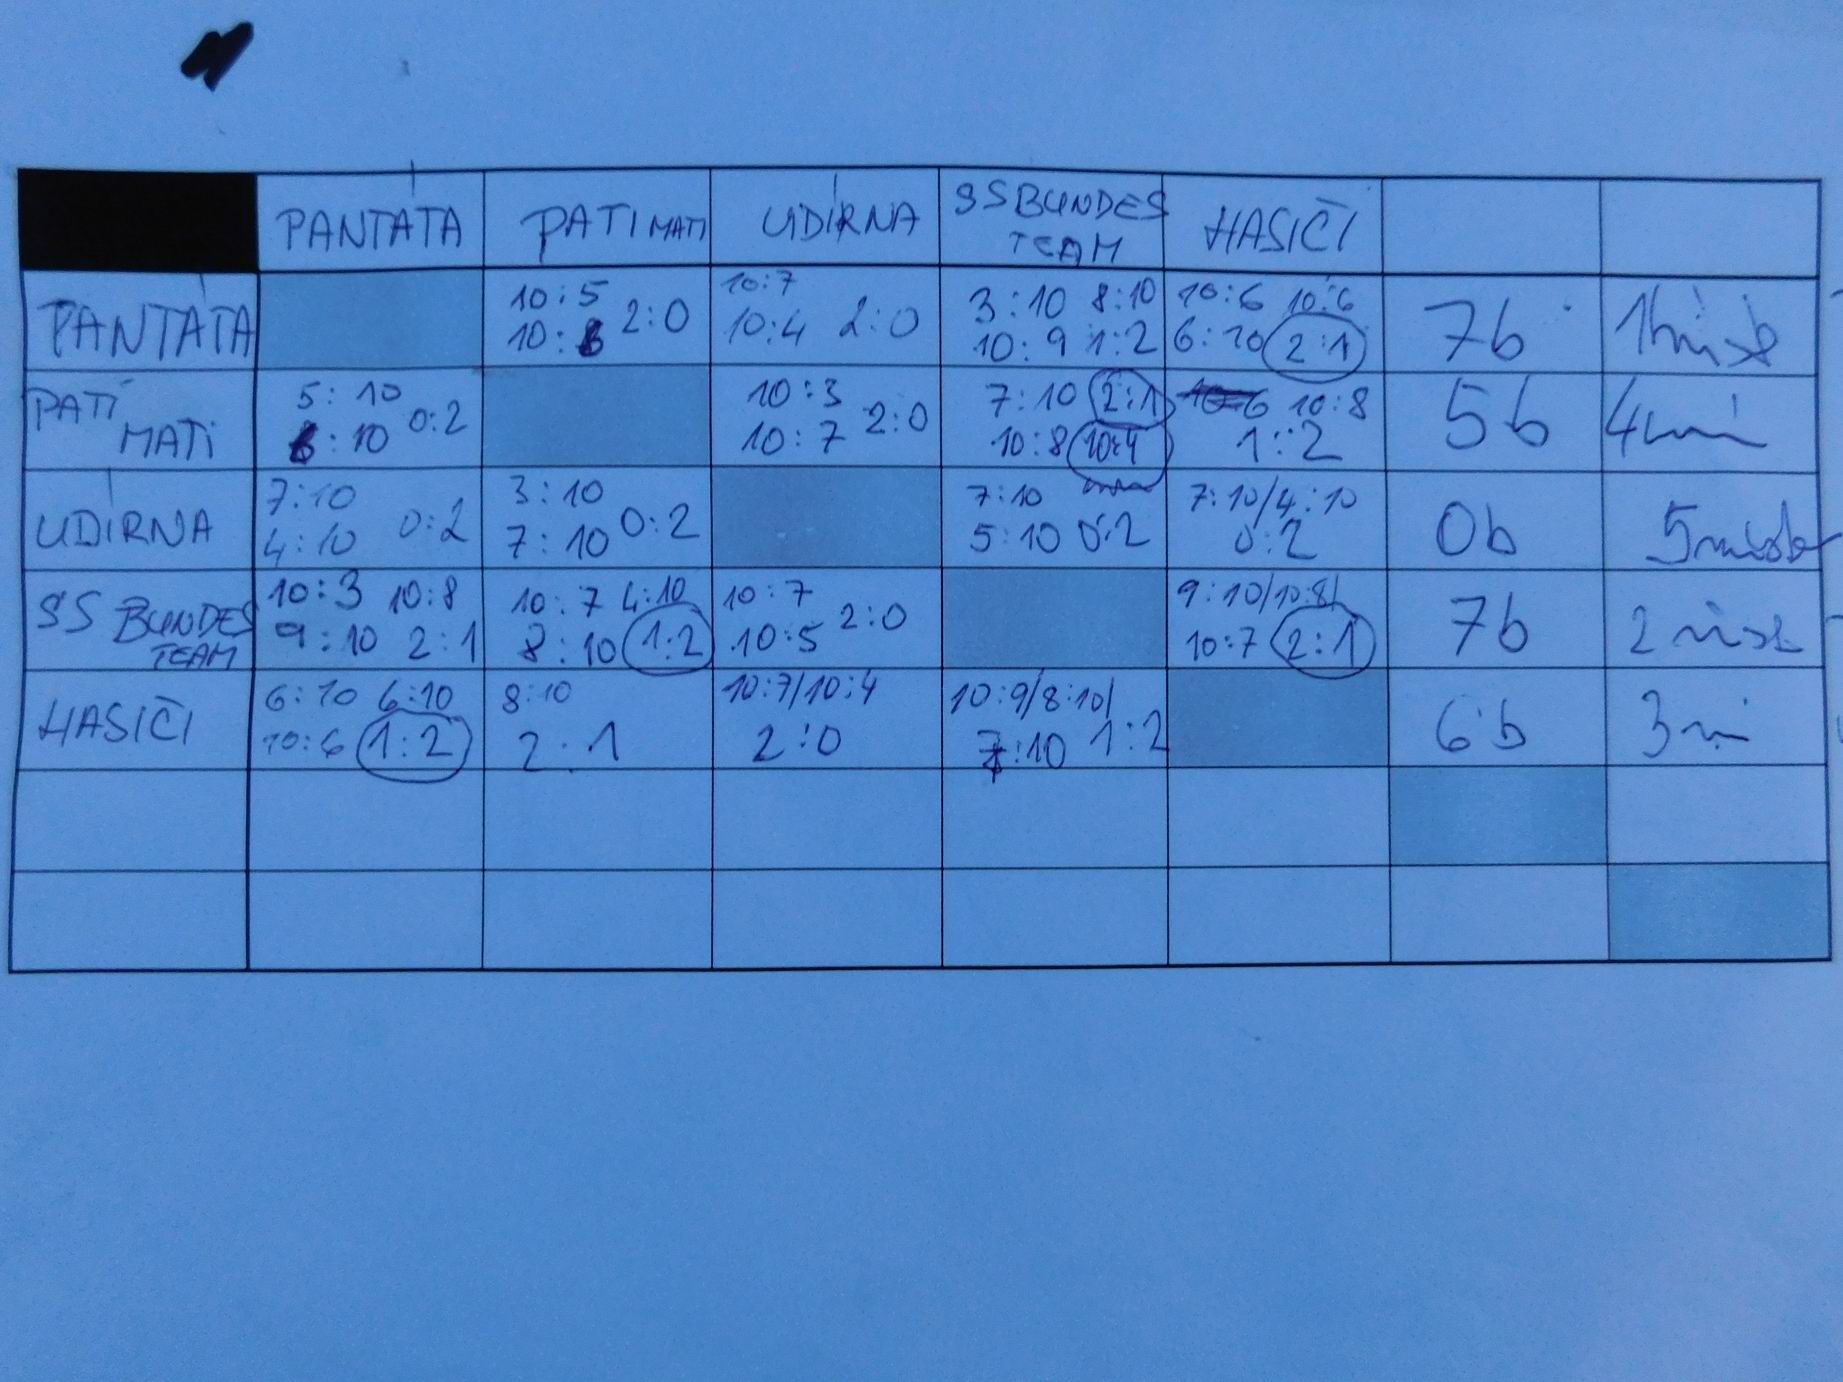 PANTÁTA PATIMATI UDÍRNA SS BUNDES TEAM HASIČI
PANTÁTA 10:5 10:7 3:10 8:10 10:6 10:6
10:6 2:0 10:4 2:0 10:9 1:2 6:10 2:1 7b 1
PATÍ MATI 5:10 10:3 7:10 2:1 10:8
6:10 0:2 10:7 2:0 10:8 10:4 1:2 5b 4
UDÍRNA 7:10 3:10 7:10 7:10/4:10
4:10 0:2 7:10 0:2 5:10 0:2 0:2 0b 5
SS BUNDES TEAM 10:3 10:8 10:7 4:10 10:7 9:10/10:8/
9:10 2:1 8:10 1:2 10:5 2:0 10:7 2:1 7b 2
HASIČI 6:10 6:10 8:10 10:7/10:4 10:9/8:10/
10:6 1:2 2:1 2:0 7:10 1:2 6b 3